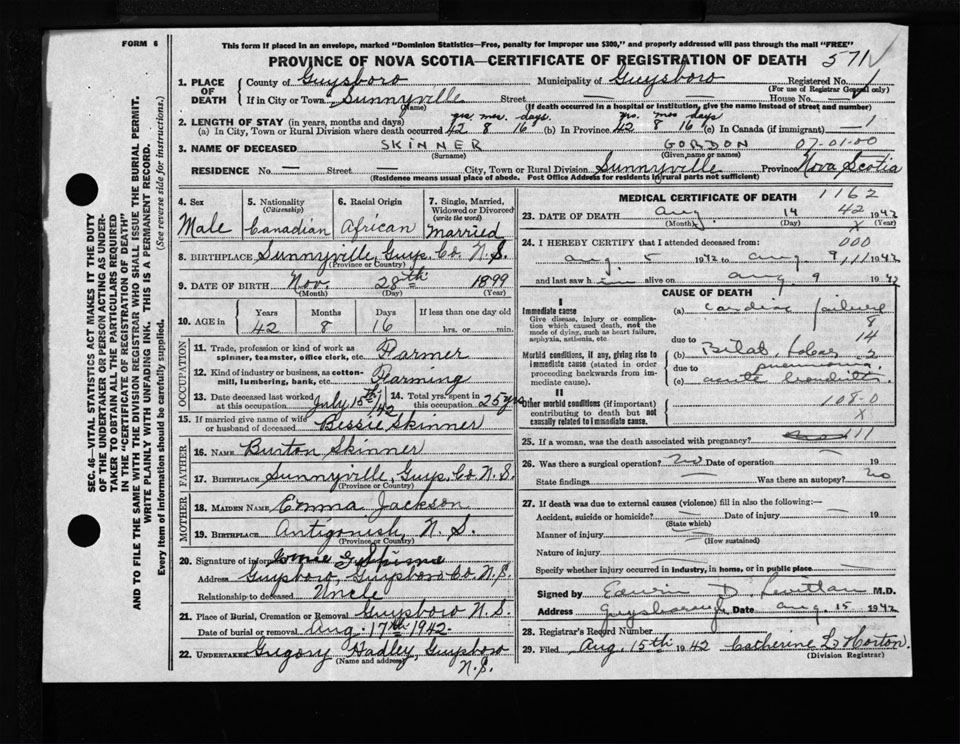 FORM 6
This form if placed in an envelope, marked "Dominion Statistics—Free, penalty for improper use $300," and properly addressed will pass through the mail "FREE"
PROVINCE OF NOVA SCOTIA—CERTIFICATE OF REGISTRATION OF DEATH 571
1. PLACE OF DEATH County of Guysboro Municipality of Guysboro Registered No. 1
(For use of Registrar General only)
If in City or Town Sunnyville Street — House No.
(Name) (If death occurred in a hospital or institution, give the name instead of street and number)
2. LENGTH OF STAY (in years, months and days) yrs. mos. days. yrs. mos days
(a) In City, Town or Rural Division where death occurred 42 8 16 (b) In Province 42 8 16 (c) In Canada (if immigrant) —
3. NAME OF DECEASED SKINNER GORDON 07-01-00
(Surname) (Given name or names)
RESIDENCE No. — Street — City, Town or Rural Division Sunnyville Province Nova Scotia
(Residence means usual place of abode. Post Office Address for residents in rural parts not sufficient)
4. Sex Male
5. Nationality (Citizenship) Canadian
6. Racial Origin African
7. Single, Married, Widowed or Divorced (write the word) Married
8. BIRTHPLACE Sunnyville, Guys. Co. N.S.
(Province or Country)
9. DATE OF BIRTH Nov. 28th 1899
(Month) (Day) (Year)
10. AGE in Years Months Days If less than one day old
42 8 16 hrs. or min.
OCCUPATION
11. Trade, profession or kind of work as spinner, teamster, office clerk, etc. Farmer
12. Kind of industry or business, as cotton-mill, lumbering, bank, etc. Farming
13. Date deceased last worked at this occupation July 15th/42 14. Total yrs. spent in this occupation 25 yrs
15. If married give name of wife or husband of deceased Bessie Skinner
FATHER
16. NAME Burton Skinner
17. BIRTHPLACE Sunnyville, Guys. Co N.S.
(Province or Country)
MOTHER
18. MAIDEN NAME Emma Jackson
19. BIRTHPLACE Antigonish, N.S.
(Province or Country)
20. Signature of informant
Address Guysboro, Guysboro Co N.S.
Relationship to deceased Uncle
21. Place of Burial, Cremation or Removal Guysboro N.S.
Date of burial or removal Aug. 17th 1942.
22. UNDERTAKER Gregory Hadley, Guysboro N.S.
(Name and address)
MEDICAL CERTIFICATE OF DEATH 1162
23. DATE OF DEATH Aug. 14 42 1942
(Month) (Day) X
24. I HEREBY CERTIFY that I attended deceased from: 000
Aug. 5 1942 to Aug 9 1942
and last saw h im alive on Aug 9 1942
CAUSE OF DEATH
I
Immediate cause
Give disease, injury or complication which caused death, not the mode of dying, such as heart failure, asphyxia, asthenia, etc
(a) Cardiac failure
8
due to 14
Morbid conditions, if any, giving rise to immediate cause (stated in order proceeding backwards from immediate cause).
(b) Bilat. lobar 2
due to pneumonia
(c) acute bronchitis
II
Other morbid conditions (if important) contributing to death but not causally related to immediate cause.
108-0
X
25. If a woman, was the death associated with pregnancy? 111
26. Was there a surgical operation? no Date of operation — 19
State findings Was there an autopsy? no
27. If death was due to external causes (violence) fill in also the following:—
Accident, suicide or homicide? — Date of injury — 19
(State which)
Manner of injury
(How sustained)
Nature of injury
Specify whether injury occurred in industry, in home, or in public place
Signed by Edwin D. M.D.
Address Guysborough Date Aug. 15 1942
28. Registrar's Record Number
29. Filed Aug. 15th 1942 Catherine L. Horton.
(Division Registrar)
SEC. 46—VITAL STATISTICS ACT MAKES IT THE DUTY
OF THE UNDERTAKER OR PERSON ACTING AS UNDER-
TAKER TO OBTAIN ALL THE PARTICULARS REQUIRED
IN THE "CERTIFICATE OF REGISTRATION OF DEATH"
AND TO FILE THE SAME WITH THE DIVISION REGISTRAR WHO SHALL ISSUE THE BURIAL PERMIT.
WRITE PLAINLY WITH UNFADING INK. THIS IS A PERMANENT RECORD.
Every item of information should be carefully supplied. (See reverse side for instructions.)